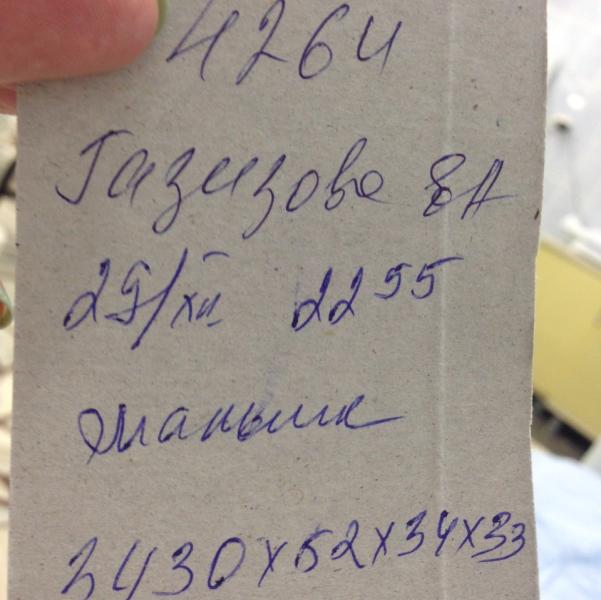 4264
Газизова ЗА
25/XII 22 55
мальчик
3430x52x34x33